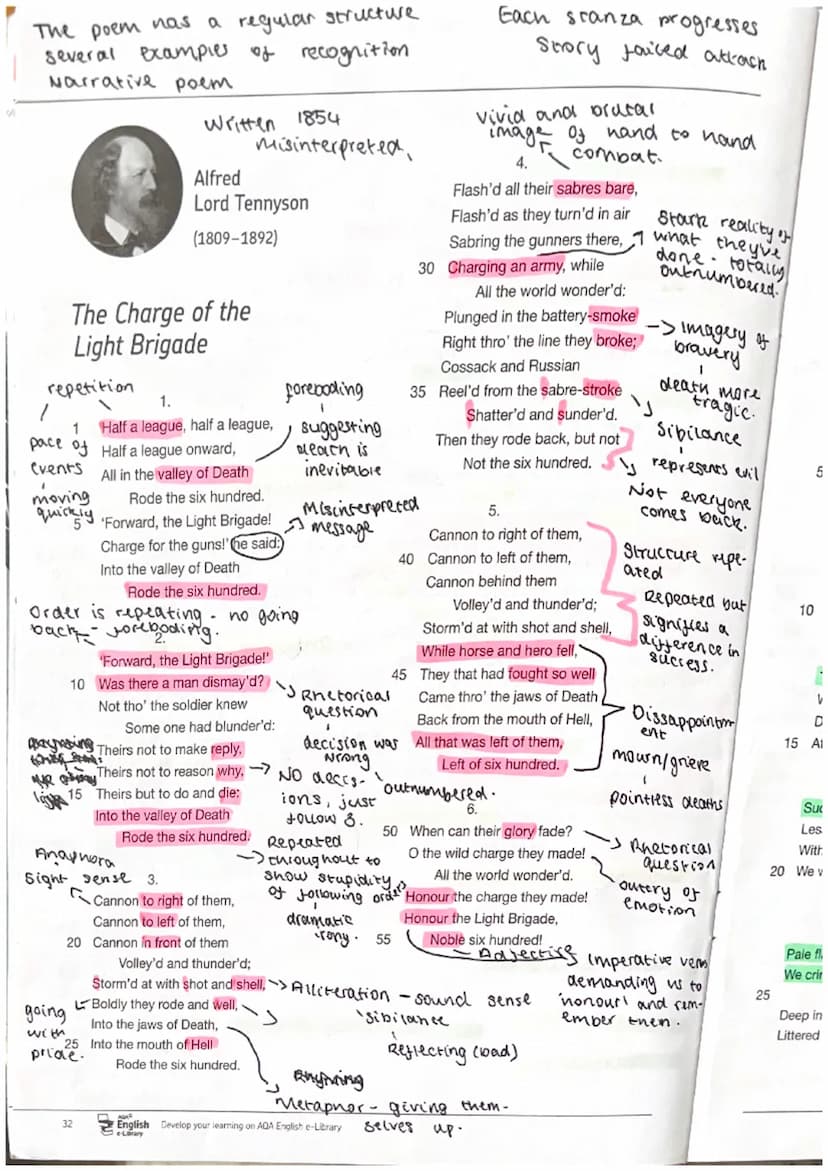 The poem has a regular structure
several examples of recognition
Narrative poem
Each stanza progresses
Story failed attack
Written 1854
Misinterpreted,
Alfred
Lord Tennyson
(1809–1892)
The Charge of the
Light Brigade
repetition
pace of
events
moving
quickly
foreboding
suggesting
death is
inevitable
1.
1 Half a league, half a league,
Half a league onward,
All in the valley of Death
Rode the six hundred.
5 'Forward, the Light Brigade!
Charge for the guns!' he said:
Into the valley of Death
Rode the six hundred.
Misinterpreted
message
Order is repeating - no going
back - foreboding.
2.
'Forward, the Light Brigade!'
10 Was there a man dismay'd?
Not tho' the soldier knew
Some one had blunder'd:
Theirs not to make reply,
Theirs not to reason why,
15 Theirs but to do and die:
Into the valley of Death
Rode the six hundred.
Rhetorical
question
decision was
wrong
No decis-
ions, just
follow
outnumbered.
Repeated
throughout to
show stupidity
of following orders
dramatic
irony.
Anaphora
Sight sense
3.
Cannon to right of them,
Cannon to left of them,
20 Cannon in front of them
Volley'd and thunder'd;
Storm'd at with shot and shell,
Boldly they rode and well,
Into the jaws of Death,
25 Into the mouth of Hell
Rode the six hundred.
going
with
pride.
Alliteration - sound sense
sibilance
Reflecting (bad)
Rhyming
Metaphor - giving them-
selves up.
vivid and brutal
image of hand to hand
combat.
4.
Flash'd all their sabres bare,
Flash'd as they turn'd in air
Sabring the gunners there,
30 Charging an army, while
All the world wonder'd:
Plunged in the battery-smoke
Right thro' the line they broke;
Cossack and Russian
35 Reel'd from the sabre-stroke
Shatter'd and sunder'd.
Then they rode back, but not
Not the six hundred.
Stark reality of
what they've
done - totally
outnumbered.
Imagery of
bravery
death more
tragic.
Sibilance
represents evil
Not everyone
comes back.
5.
Cannon to right of them,
40 Cannon to left of them,
Cannon behind them
Volley'd and thunder'd;
Storm'd at with shot and shell,
While horse and hero fell,
45 They that had fought so well
Came thro' the jaws of Death
Back from the mouth of Hell,
All that was left of them,
Left of six hundred.
Structure repe-
ated
Repeated but
signifies a
difference in
success.
Dissappointm-
ent
mourn/grieve
pointless deaths
6.
50 When can their glory fade?
O the wild charge they made!
All the world wonder'd.
Honour the charge they made!
Honour the Light Brigade,
55 Noble six hundred!
Rhetorical
question
outcry of
emotion
Adjective
Imperative verb
demanding us to
'honour' and rem-
ember them.
32
AQA
English
e-Library
Develop your learning on AQA English e-Library
5
10
15
Suc
Les
With
20 We v
Pale fl
We crin
25
Deep in
Littered